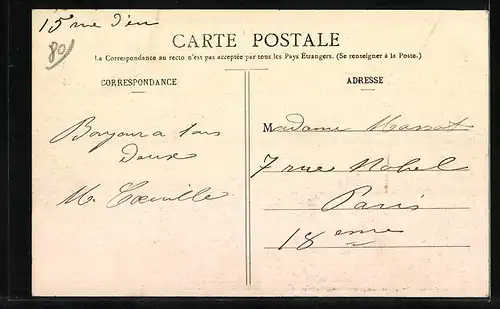 15 rue d'eu
80
CARTE POSTALE
La Correspondance au recto n'est pas acceptée par tous les Pays Étrangers. (Se renseigner à la Poste.)
CORRESPONDANCE
Bonjour a tous
deux
M.
ADRESSE
Madame Massot
7 rue Nobel
Paris
18 eme